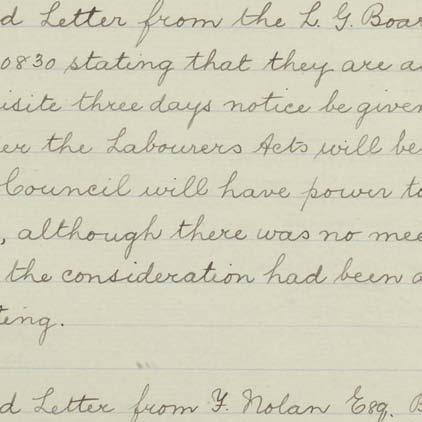 d Letter from the L. G. Boar
0830 stating that they are a
isite three days notice be given
er the Labourers Acts will be
Council will have power to
, although there was no mee
the consideration had been a
ting.
d Letter from F. Nolan Esq. B